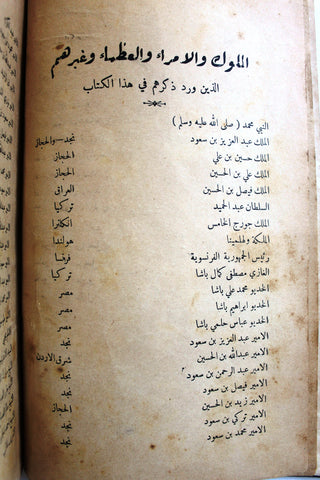 الملوك والامراء والعظماء وغيرهم
الذين ورد ذكرهم في هذا الكتاب
النبي محمد ( صلى الله عليه وسلم )
الملك عبد العزيز بن سعود نجد-والحجاز
الملك حسين بن علي الحجاز
الملك علي بن الحسين الحجاز
الملك فيصل بن الحسين العراق
السلطان عبد الحميد تركيا
الملك جورج الخامس انكلترا
الملكة ولهلمينا هولندا
رئيس الجمهورية الفرنسوية فرنسا
الغازي مصطفى كمال باشا تركيا
الخديو محمد علي باشا مصر
الخديو ابراهيم باشا مصر
الخديو عباس حلمي باشا مصر
الامير عبد العزيز بن سعود نجد
الامير عبدالله بن الحسين شرق الاردن
الامير عبد الرحمن بن سعود نجد
الامير فيصل بن سعود نجد
الامير زيد بن الحسين الحجاز
الامير تركي بن سعود نجد
الامير محمد بن سعود نجد